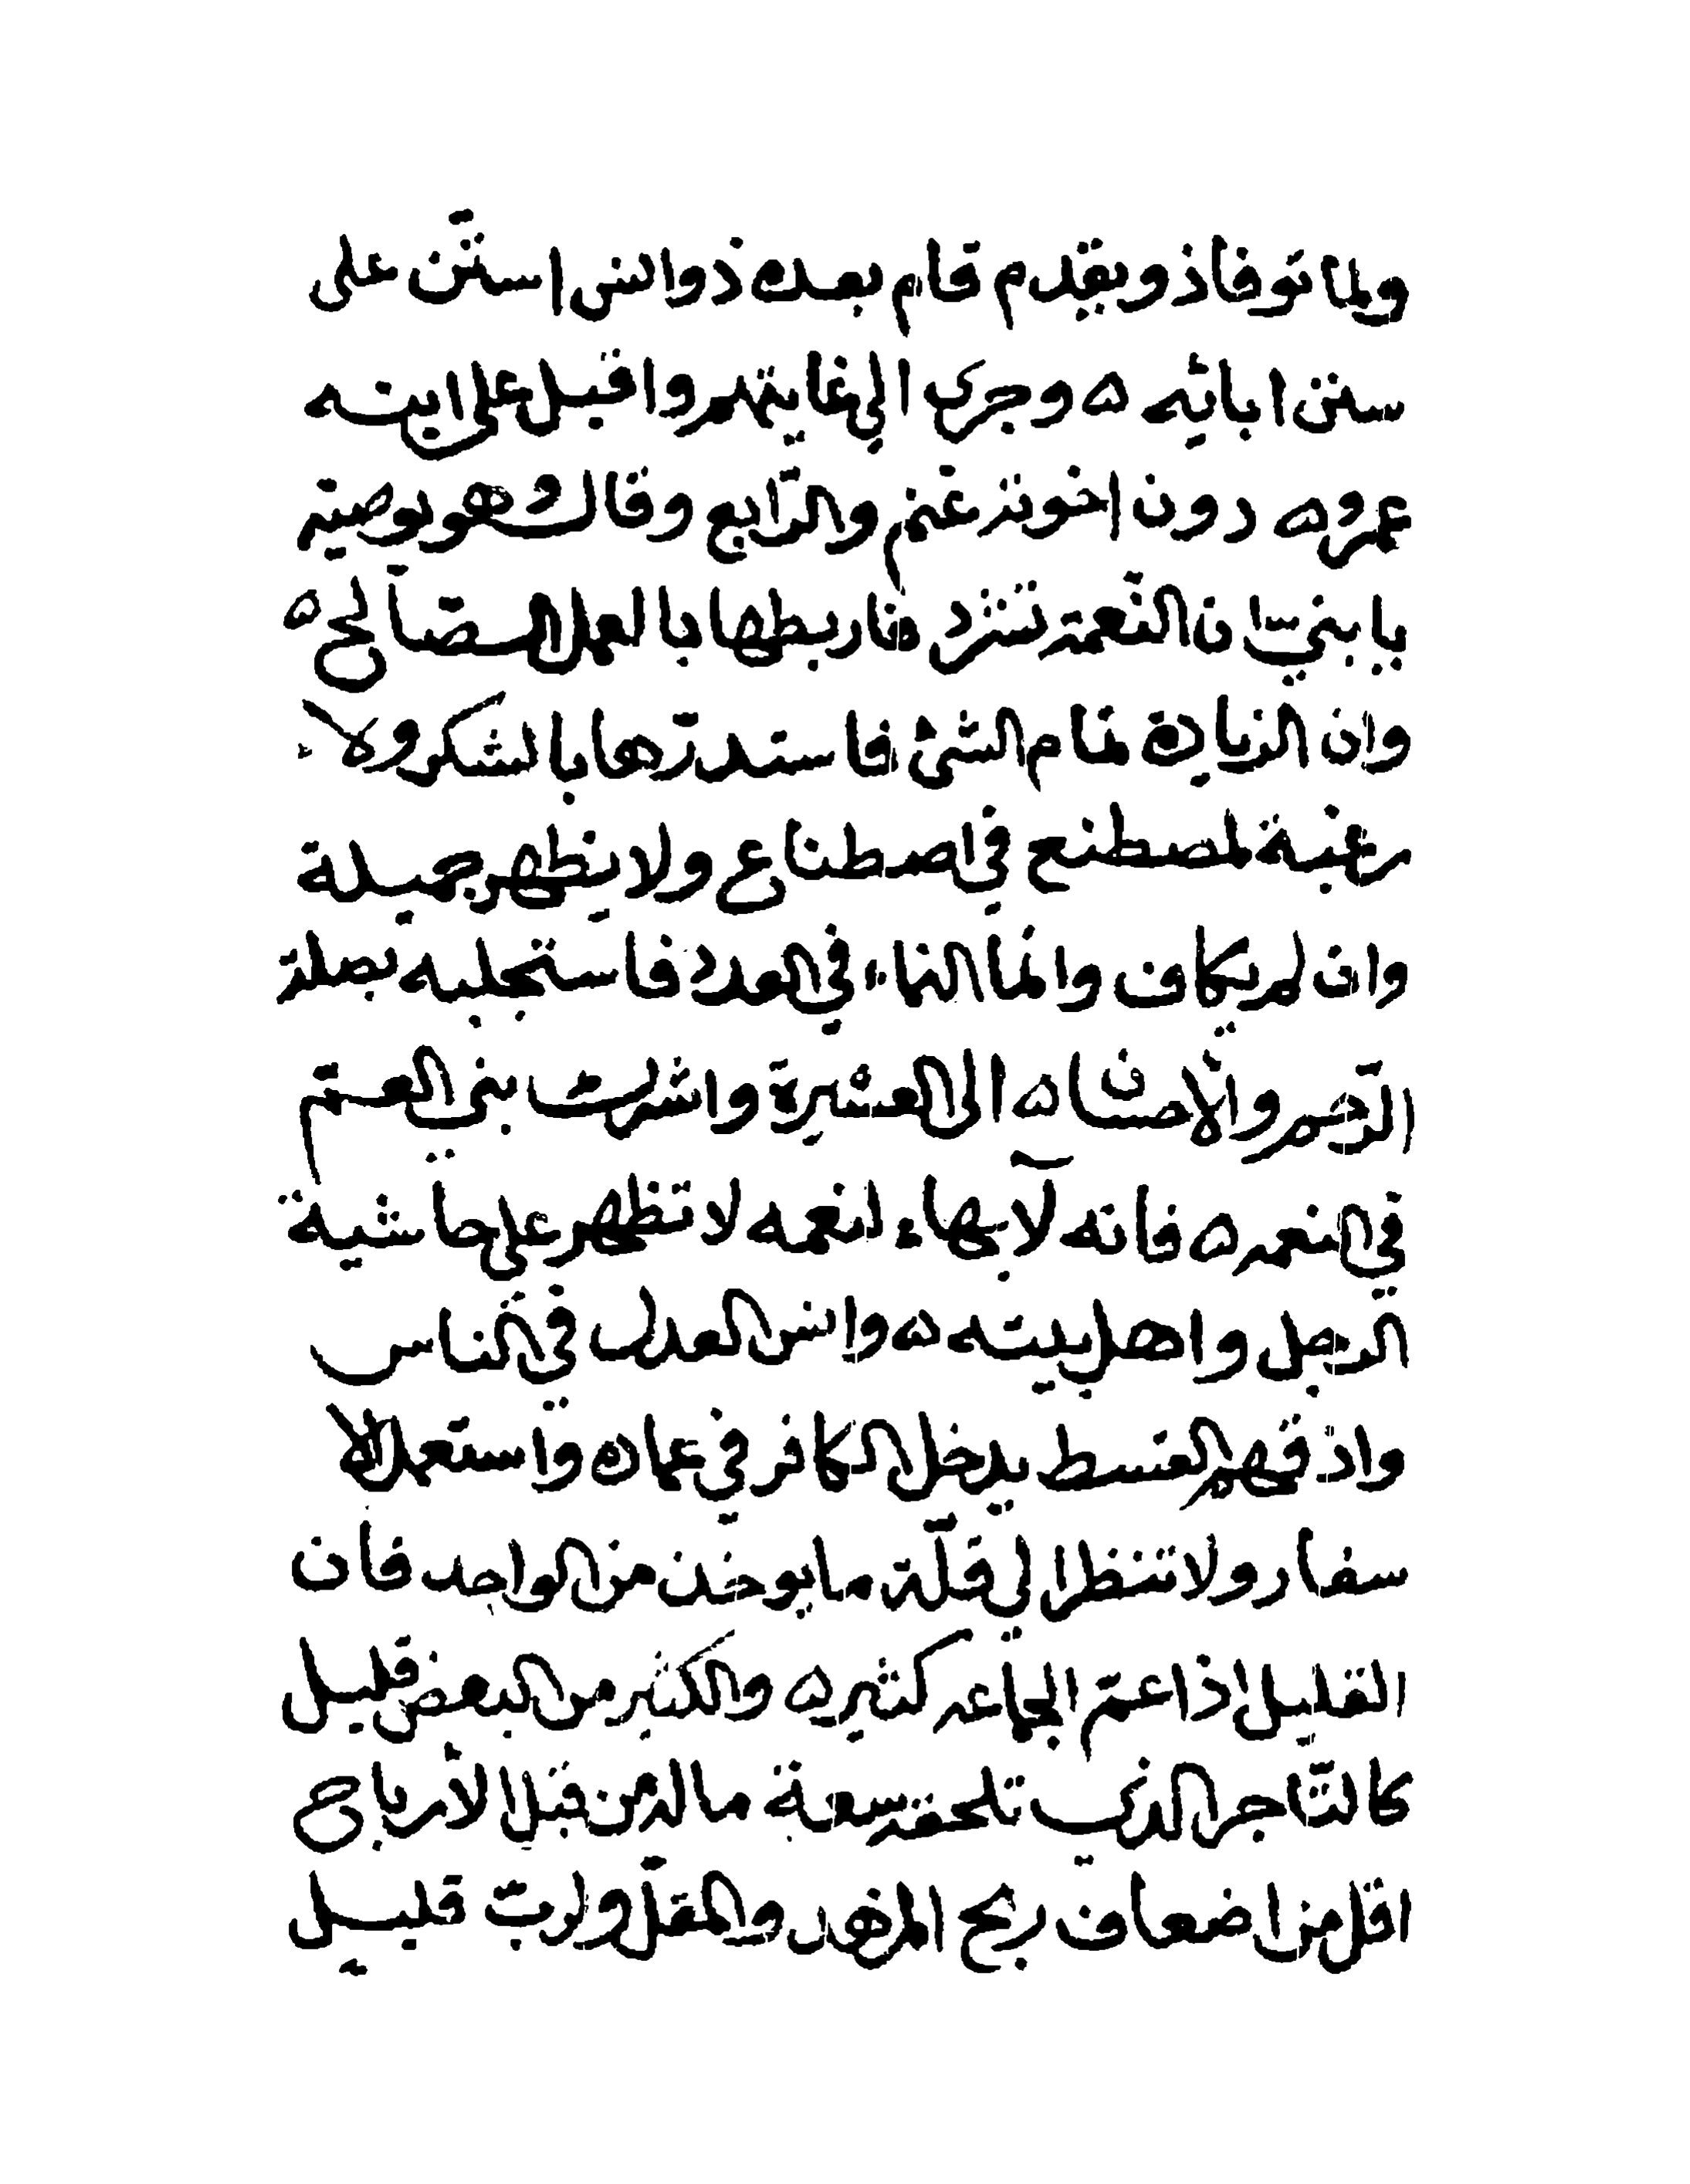 ولما توفا ذو يقدم قام بعده ذوانس استّن على
سنن ابائه ه وجرى الي غايتهم واقبل علي ابنه
عمرو ه دون اخوته غنم والرّابع وقال وهو يوصيه
يا بنيّ ان النّعمة تشرد فاربطها بالعمل الصّالح ه
وان الزيادة تمام الشئ فاستدرّها بالشكر ولا
رغبة لمصطنع في اصطناع ولا يظهر جميلة
وان لم يكاف وانما النماء في العدد فاستجلبه بصلة
الرّحم والاحسان ه الى العشيرة واشرك بني العم
في النعمه ه فانه لا بهاء انعمه لا تظهر علي حاشية
الرجل واهل بيته ه وانس العدل في الناس
واذقهم القسط يدخل الكافر في عماه واستعمل الا
سفار ولا تنظر الي قلّة ما يوخذ من الواحد فان
القليل اذا عم الجماعه كثير ه والكثير من البعض قليل
كالتّاجر الذي تلحقه سعة ماله من قبل الأرباح
اقل من اضعاف ربح المزهد والمقلّ ولرب قليل